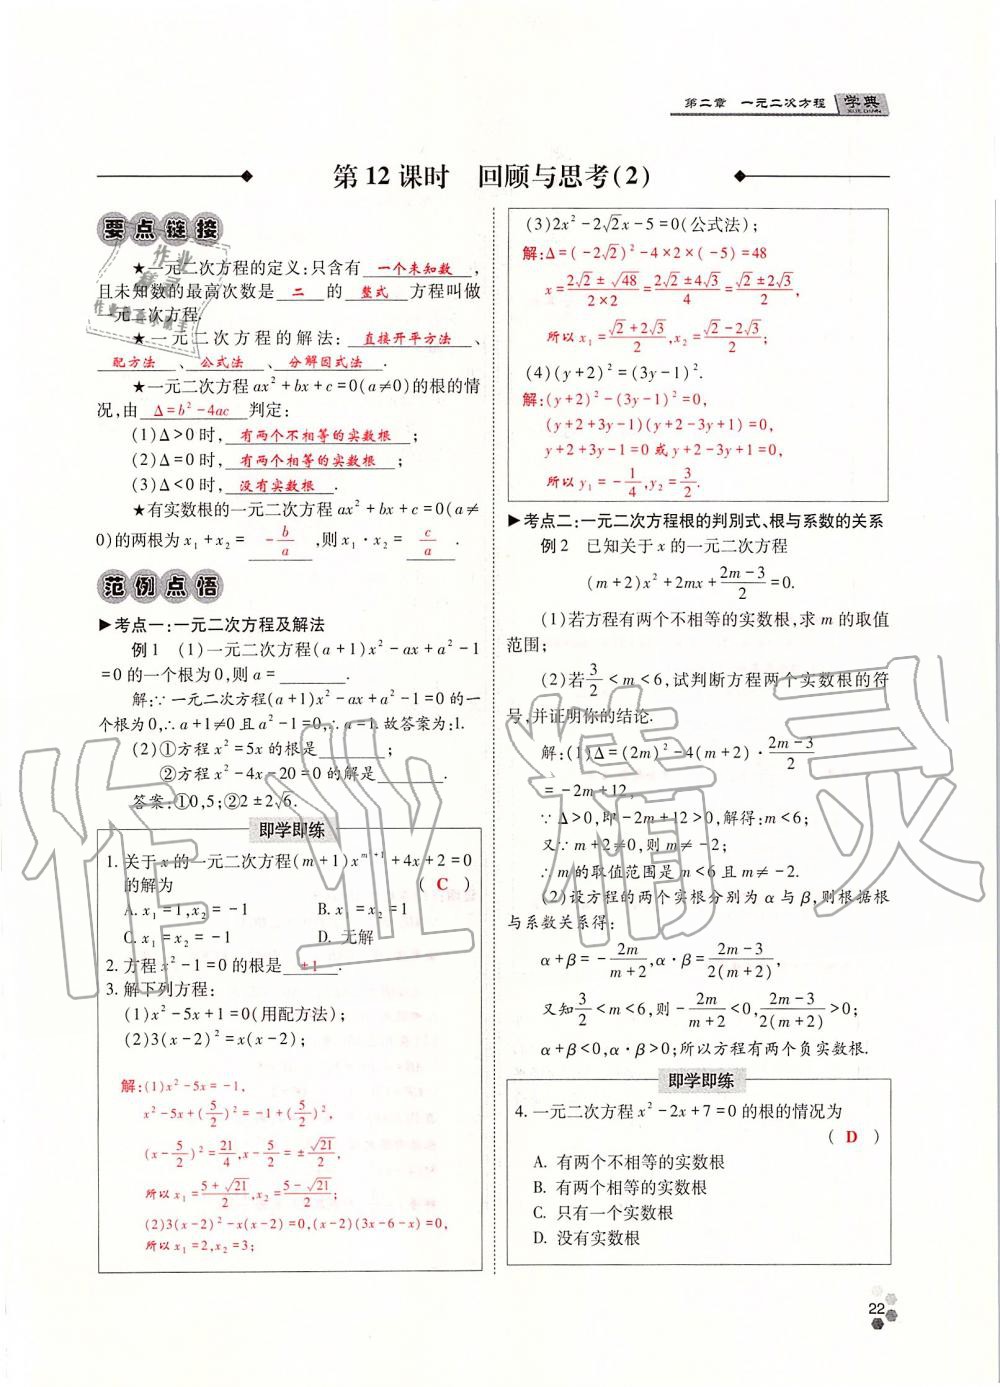 第二章 一元二次方程 学典
XUE DIAN
第12课时 回顾与思考(2)
要点链接
★一元二次方程的定义:只含有 一个未知数 ,
且未知数的最高次数是 二 的 整式 方程叫做
一元二次方程.
★一元二次方程的解法: 直接开平方法 、
配方法 、 公式法 、 分解因式法 .
★一元二次方程ax²+bx+c=0(a≠0)的根的情
况,由 Δ=b²-4ac 判定:
(1)Δ>0时, 有两个不相等的实数根 ;
(2)Δ=0时, 有两个相等的实数根 ;
(3)Δ<0时, 没有实数根 .
★有实数根的一元二次方程ax²+bx+c=0(a≠
0)的两根为x₁+x₂= -b/a ,则x₁·x₂= c/a .
范例点悟
▶考点一:一元二次方程及解法
例1 (1)一元二次方程(a+1)x²-ax+a²-1
=0的一个根为0,则a=______.
解:∵一元二次方程(a+1)x²-ax+a²-1=0的一
个根为0,∴a+1≠0且a²-1=0,∴a=1.故答案为:1.
(2)①方程x²=5x的根是______;
②方程x²-4x-20=0的解是______.
答案:①0,5;②2±2√6.
即学即练
1. 关于x的一元二次方程(m+1)x^(m+1)+4x+2=0
的解为 ( C )
A. x₁=1,x₂=-1 B. x₁=x₂=1
C. x₁=x₂=-1 D. 无解
2. 方程x²-1=0的根是 ±1 .
3. 解下列方程:
(1)x²-5x+1=0(用配方法);
(2)3(x-2)²=x(x-2);
解:(1)x²-5x=-1,
x²-5x+(5/2)²=-1+(5/2)²,
(x-5/2)²=21/4,x-5/2=±√21/2,
所以x₁=(5+√21)/2,x₂=(5-√21)/2,
(2)3(x-2)²-x(x-2)=0,(x-2)(3x-6-x)=0,
所以x₁=2,x₂=3;
(3)2x²-2√2x-5=0(公式法);
解:Δ=(-2√2)²-4×2×(-5)=48
x=(2√2±√48)/(2×2)=(2√2±4√3)/4=(√2±2√3)/2,
所以x₁=(√2+2√3)/2,x₂=(√2-2√3)/2;
(4)(y+2)²=(3y-1)².
解:(y+2)²-(3y-1)²=0,
(y+2+3y-1)(y+2-3y+1)=0,
y+2+3y-1=0或y+2-3y+1=0,
所以y₁=-1/4,y₂=3/2.
▶考点二:一元二次方程根的判别式、根与系数的关系
例2 已知关于x的一元二次方程
(m+2)x²+2mx+(2m-3)/2=0.
(1)若方程有两个不相等的实数根,求m的取值
范围;
(2)若3/2<m<6,试判断方程两个实数根的符
号,并证明你的结论.
解:(1)Δ=(2m)²-4(m+2)·(2m-3)/2
=-2m+12,
∵Δ>0,即-2m+12>0,解得:m<6;
又∵m+2≠0,则m≠-2;
∴m的取值范围是m<6且m≠-2.
(2)设方程的两个实根分别为α与β,则根据根
与系数关系得:
α+β=-2m/(m+2),α·β=(2m-3)/(2(m+2)),
又知3/2<m<6,则-2m/(m+2)<0,(2m-3)/(2(m+2))>0;
α+β<0,α·β>0;所以方程有两个负实数根.
即学即练
4. 一元二次方程x²-2x+7=0的根的情况为
( D )
A. 有两个不相等的实数根
B. 有两个相等的实数根
C. 只有一个实数根
D. 没有实数根
22
作业精灵